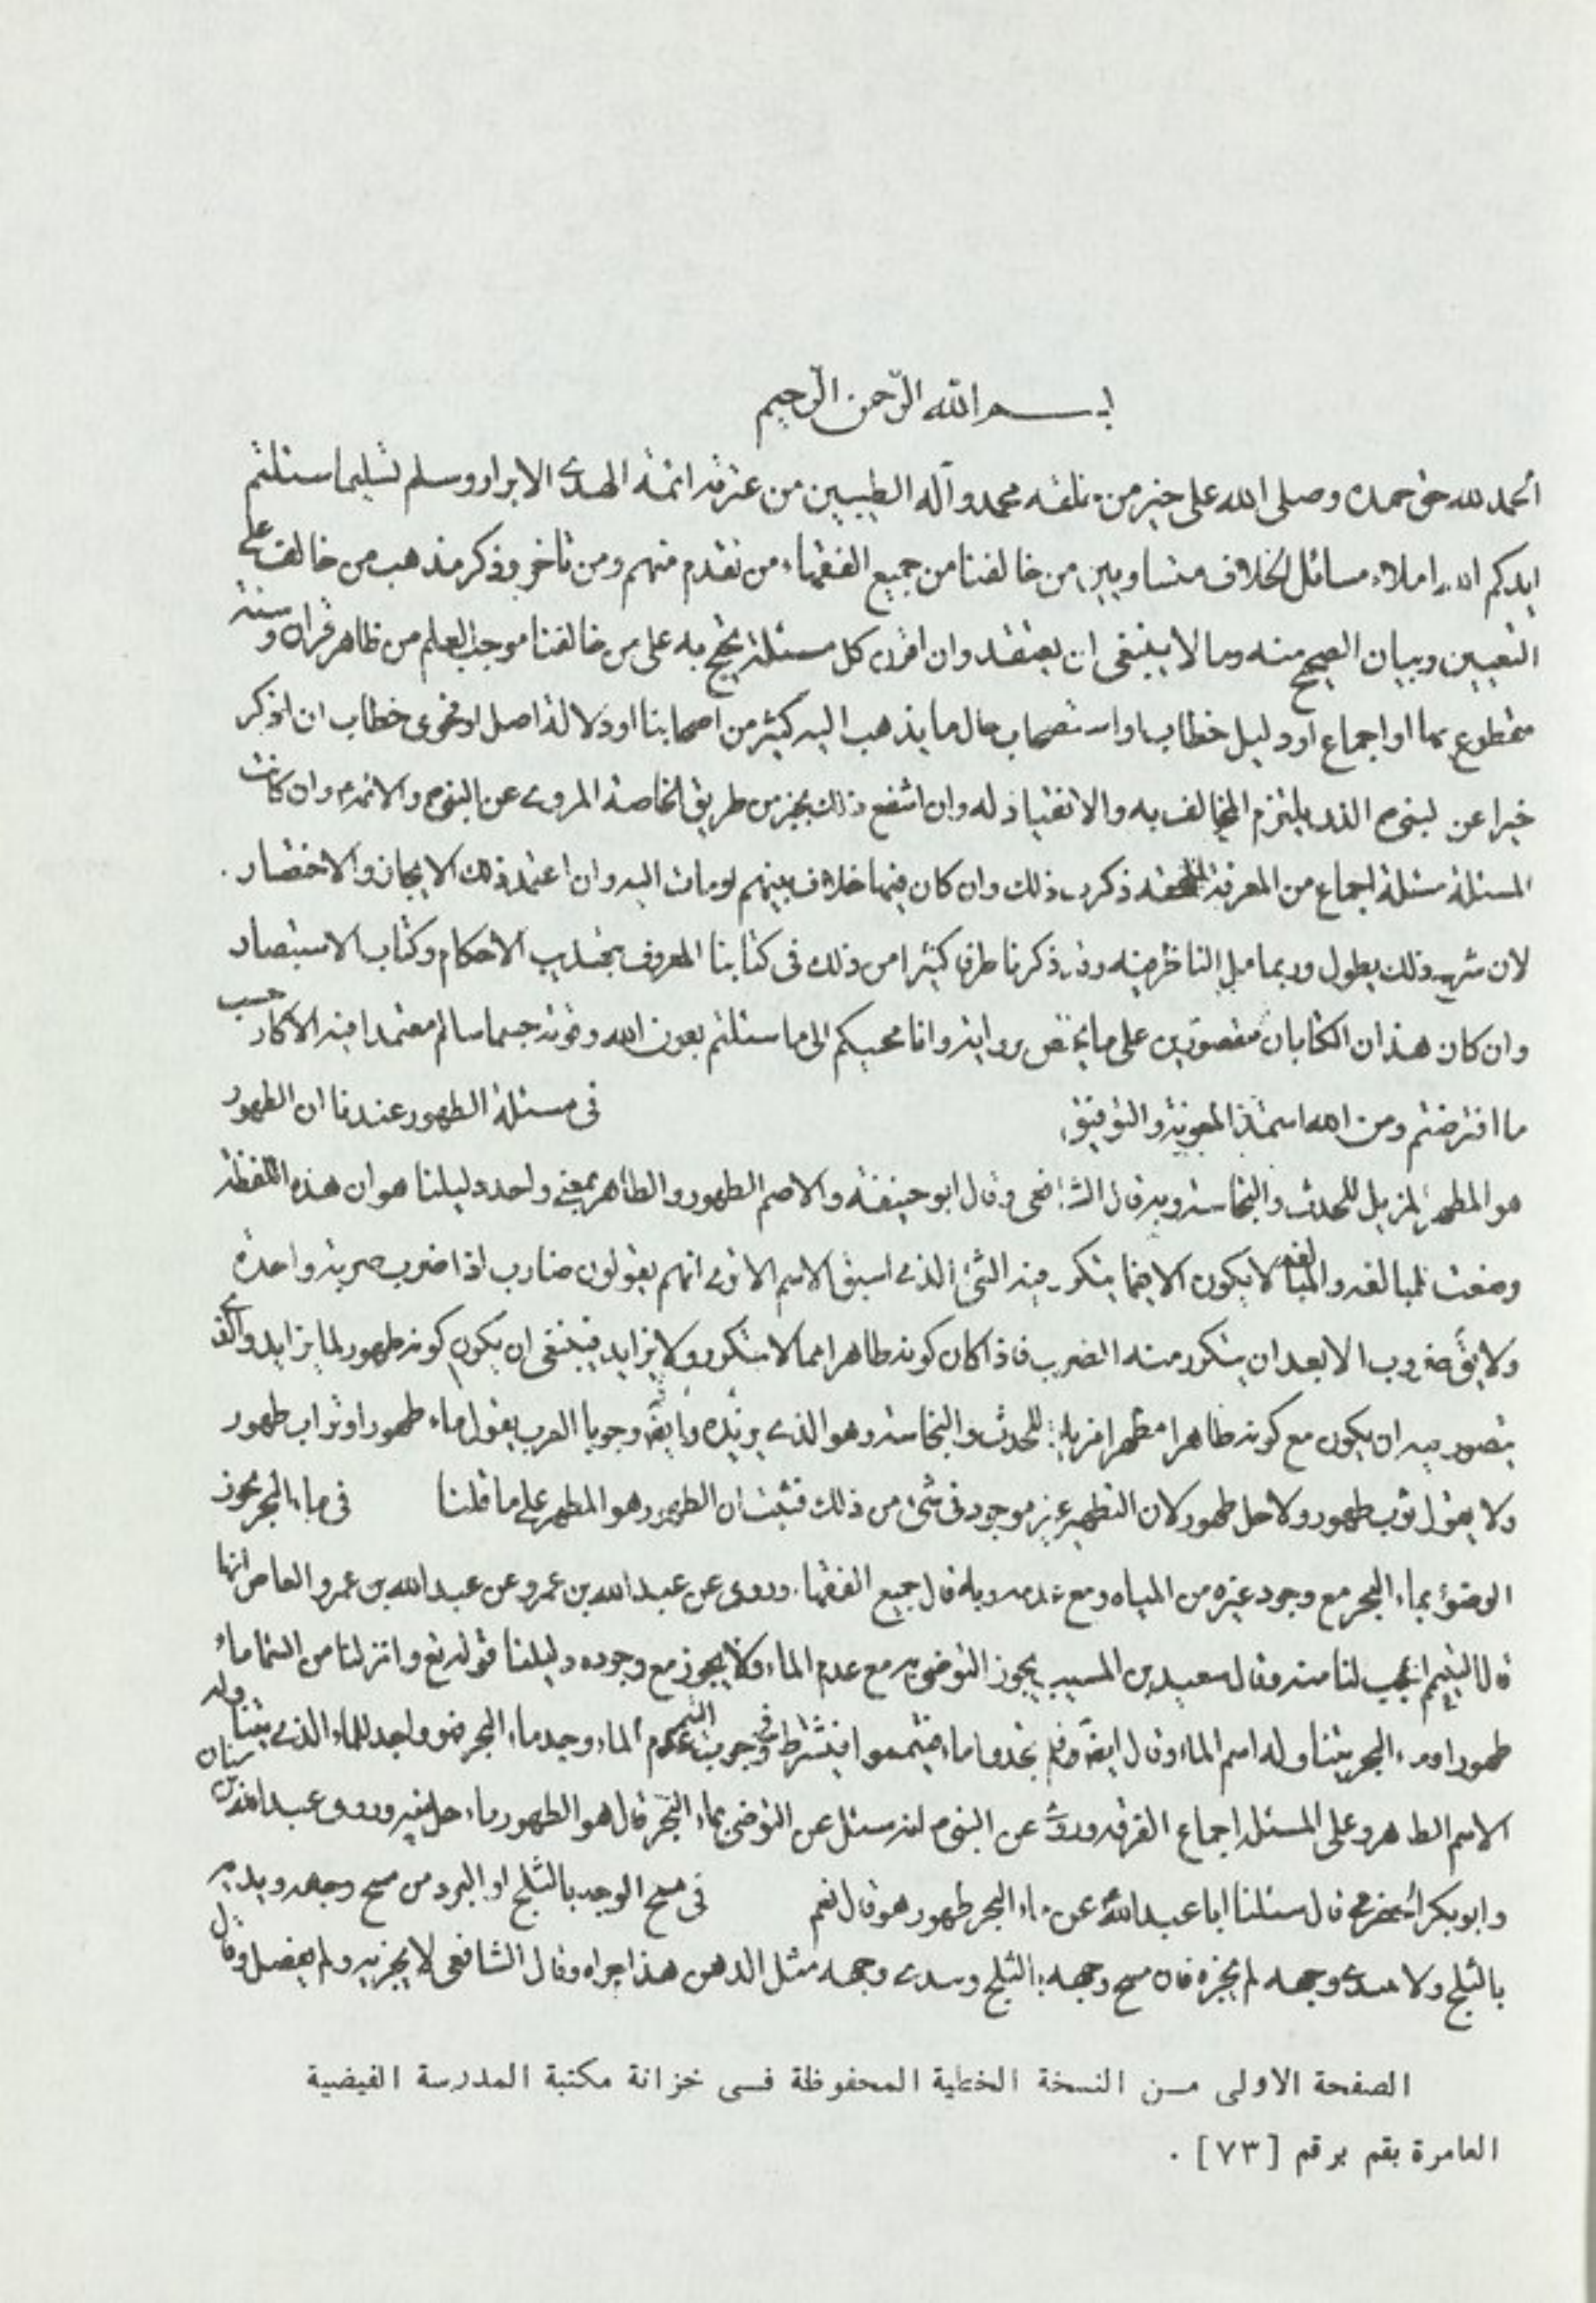 بسم الله الرّحمن الرّحيم
الحمد لله حق حمده وصلى الله على خير من خلقه محمد وآله الطيبين من عترته ائمة الهدى الابرار وسلم تسليما سئلتم
ايدكم الله املاء مسائل الخلاف من خالفنا من جميع الفقهاء من تقدم منهم ومن تاخر وذكر مذهب من خالف على
التعيين وبيان الصحيح منه وما لا ينبغى ان يعتقد وان اقرن كل مسئلة نحتج به على من خالفنا موجب العلم من ظاهر قران و سنة
مقطوع بها او اجماع او دليل خطاب او استصحاب حال ما يذهب اليه كثير من اصحابنا او دلالة اصل او فحوى خطاب ان اذكر
خبرا عن النبى الذى يلتزم المخالف به والانقياد له وان اشفع ذلك بخبر من طريق الخاصة المروى عن النبى والائمة وان كانت
المسئلة مسئلة اجماع من الفرقة المحقة ذكرت ذلك وان كان فيها خلاف بينهم اومات اليه وان اعتمد ذلك الايجاز والاختصار .
لان شرح ذلك يطول وربما مل الناظر فيه وقد ذكرنا طرفا كثيرا من ذلك فى كتابنا المعروف بتهذيب الاحكام وكتاب الاستبصار
وان كان هذان الكتابان مقصورين على ما يختص روايته وانا مجيبكم الى ما سئلتم بعون الله وقوته حسبما سالتم معتمدا فيه الاكار حسب
ما اقترضتم ومن الله استمد المعونة والتوفيق فى مسئلة الطهور عندنا ان الطهور
هو المطهر المزيل للحدث والنجاسة وبه قال الشافعى وقال ابو حنيفة والاصم الطهور والطاهر بمعنى واحد دليلنا هو ان هذه اللفظة
وضعت للمبالغة والمبالغة لا يكون الا فيما يتكرر فيه الشئ الذى اسبق الاسم الا ترى انهم يقولون ضارب اذا ضرب ضربة واحدة
ولا يقّ ضروب الا بعد ان يتكرر منه الضرب فاذا كان كونه طاهرا مما لا يتكرر ولا يتزايد فينبغى ان يكون كونه طهور لما يتزايد والذى
يتصور فيه ان يكون مع كونه طاهرا مطهرا مزيلا للحدث والنجاسة وهو الذى نريده وايضّ وجدنا العرب يقول ماء طهور او تراب طهور
ولا يقول ثوب طهور ولا خل طهور لان التطهير غير موجود فى شئ من ذلك فثبت ان الطهور هو المطهر على ما قلنا فى ماء البحر يجوز
الوضوء بماء البحر مع وجود غيره من المياه ومع عدمه وبه قال جميع الفقهاء وروى عن عبد الله بن عمر وعن عبد الله بن عمرو العاص انها
قالا التيمم احب لنا منه وقال سعيد بن المسيب يجوز التوضى به مع عدم الماء ولا يجوز مع وجوده دليلنا قوله تع وانزلنا من السماء ماء
طهورا وماء البحر يتناوله اسم الماء وقال ايضّ وفلم تجدوا ماء فتيمموا فيشترط فى وجوب التيمم عدم الماء ووجد ماء البحر فهو واجد للماء الذى يتناوله
الاسم الطاهر وعلى المسئلة اجماع الفرقة وروى عن النبى انه سئل عن التوضى بماء البحر قال هو الطهور ماءه حل ميته وروى عبد الله بن سنان
وابو بكر الحضرمى قال سئلنا ابا عبد الله عن ماء البحر طهور هو قال نعم فى مسح الوجه بالثلج او البرد من مسح وجهه ويديه
بالثلج ولا يندى وجهه لم يجزه فان مسح وجهه بالثلج وندى وجهه مثل الدهن هذا اجزاه وقال الشافعى لا يجزيه ولم يفصل وقال
الصفحة الاولى مـن النسخة الخطية المحفوظة فـى خزانة مكتبة المدرسة الفيضية
العامرة بقم برقم [٧٣] .